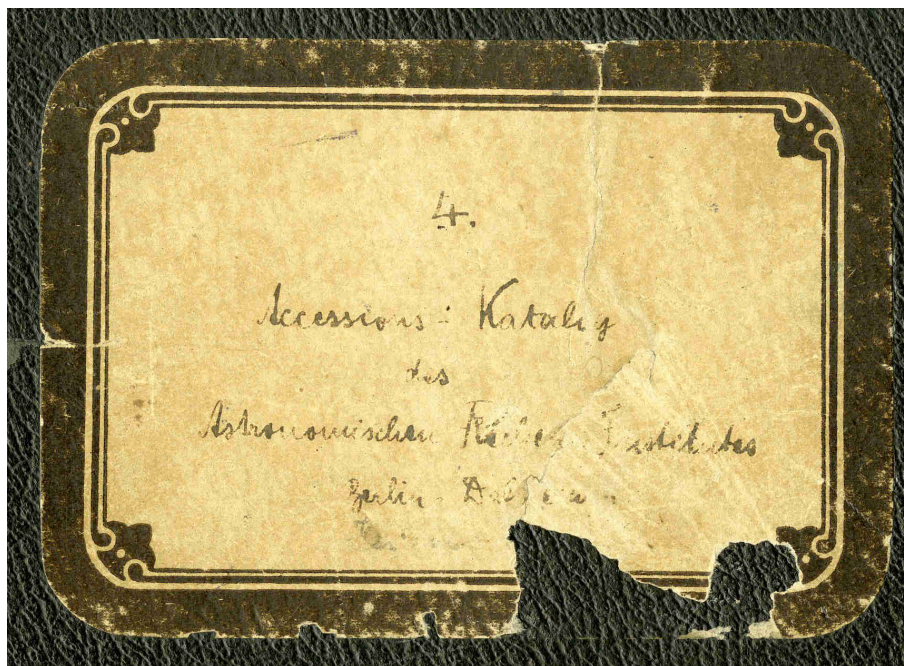 4.
Accessions-Katalog
des
Astronomischen Rechen-Institutes
Berlin-Dahlem